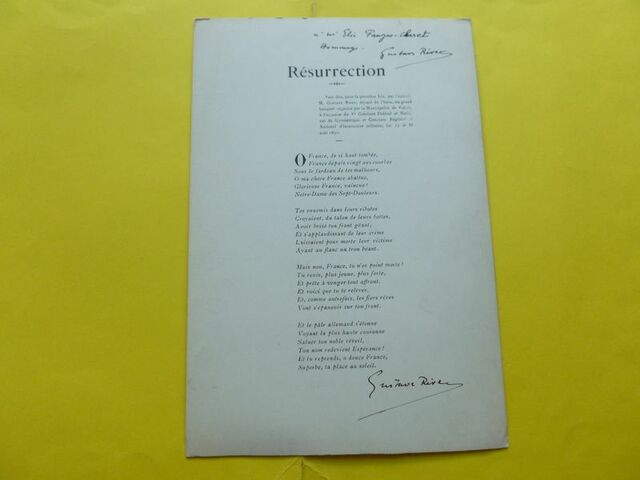 Hommage
Gustave Rivet
Résurrection
Vers dits, pour la première fois, par l'auteur,
M. Gustave Rivet, député de l'Isère, au grand
banquet organisé par la Municipalité de
à l'occasion du Vᵉ Concours Fédéral et
de Gymnastique et Concours Régional et
National d'Instruction militaire, les 15 et 16
août
O France, de si haut tombée,
France depuis vingt ans courbée
Sous le fardeau de tes malheurs,
O ma chère France abattue,
Glorieuse France, vaincue !
Notre-Dame des Sept-Douleurs.
Tes ennemis dans leurs ribotes
Croyaient, du talon de leurs bottes,
Avoir brisé ton front géant,
Et s'applaudissant de leur crime
Laissaient pour morte leur victime
Ayant au flanc un trou béant.
Mais non, France, tu n'es point morte !
Tu revis, plus jeune, plus forte,
Et prête à venger tout affront.
Et voici que tu te relèves,
Et, comme autrefois, les fiers rêves
Vont s'épanouir sur ton front.
Et le pâle allemand s'étonne
Voyant la plus haute couronne
Saluer ton noble réveil,
Ton nom redevient Espérance !
Et tu reprends, ô douce France,
Superbe, ta place au soleil.
Gustave Rivet